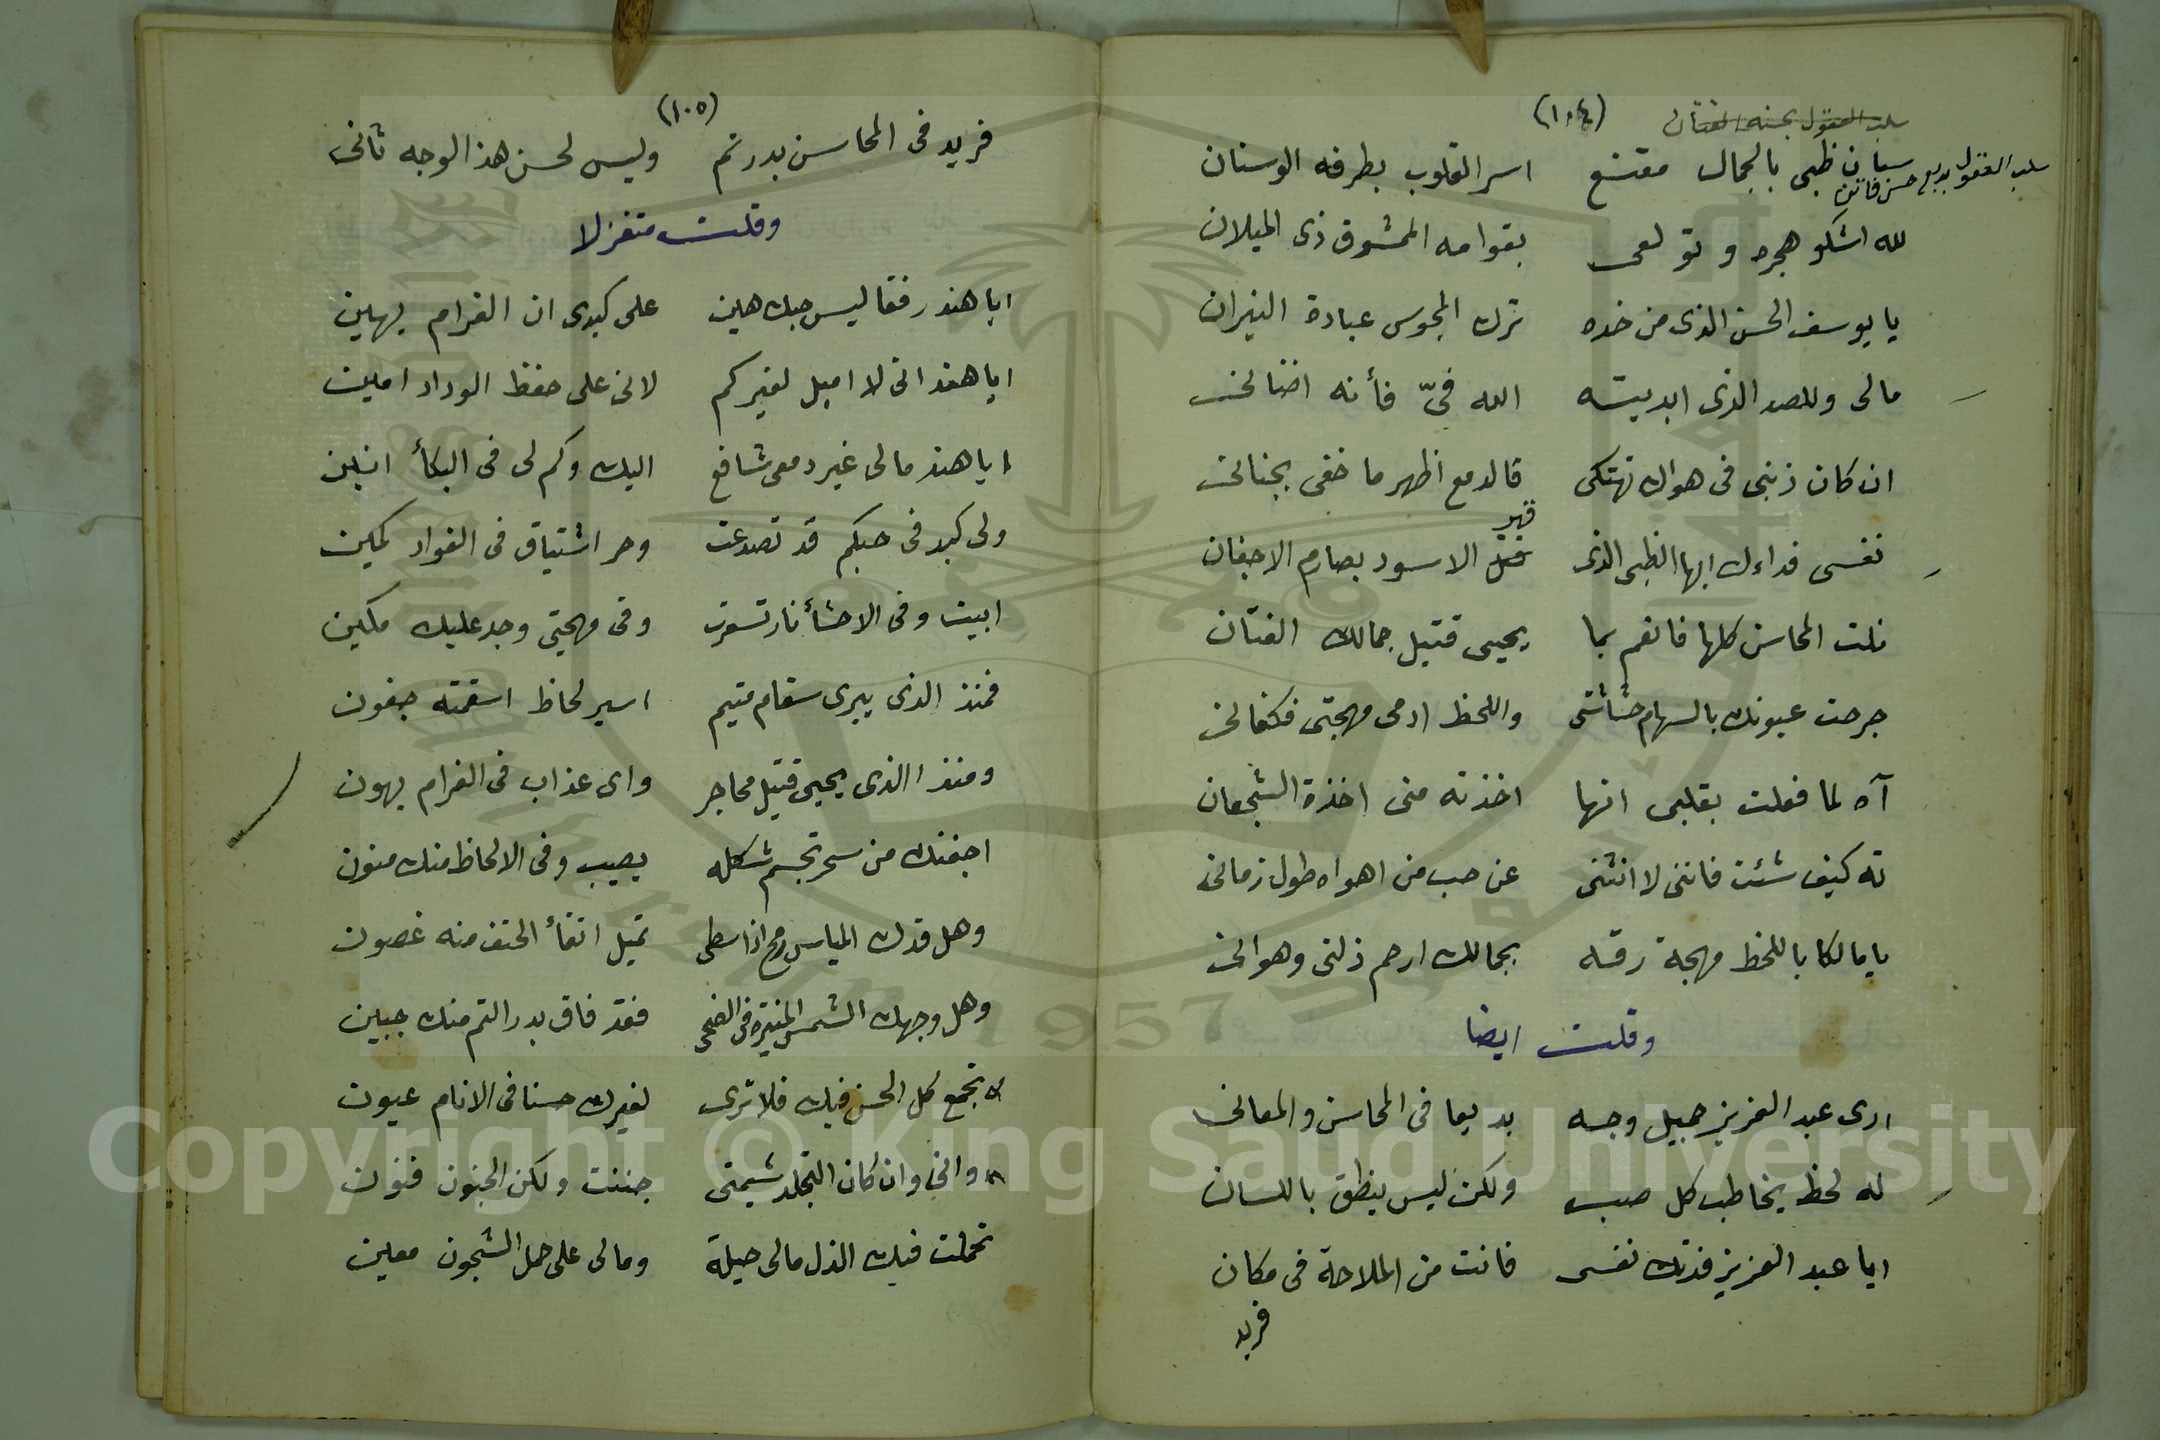 (١٠٤)
سلب العقول بحسنه الفتان
سلب العقول بديع حسن فاتن
سبان ظبى بالجمال مقنع اسر القلوب بطرفه الوسنان
لله اشكو هجره و تولعى بقوامه الممشوق ذى الميلان
يا يوسف الحسن الذى من خده ترك المجوس عبادة النيران
مالى وللصد الذى ابديته الله فىّ فأنه اضنانى
ان كان ذنبى فى هواك تهتكى فالدمع اظهر ما خفى بجنانى
قهر
نفسى فداءك ايها الظبى الذى قتل الاسود بصارم الاجفان
نلت المحاسن كلها فانعم بما يحيى قتيل جمالك الفتّان
جرحت عيونك بالسهام حشاشتى واللحظ ادمى مهجتى فكفانى
آه لما فعلت بقلبى انها اخذته منى اخذة الشجعان
ته كيف شئت فاننى لا انثنى عن حب من اهواه طول زمانى
يا مالكا باللحظ مهجة رقه بجمالك ارحم ذلتى وهوانى
وقلت ايضا
ارى عبد العزيز جميل وجه بديعا فى المحاسن والمعانى
له لحظ يخاطب كل صب ولكن ليس ينطق باللسان
ايا عبد العزيز فدتك نفسى فانت من الملاحة فى مكان
فريد
(١٠٥)
فريد فى المحاسن بدر تم وليس لحسن هذ الوجه ثانى
وقلت متغزلا
ايا هند رفقا ليس حبك هين على كبدى ان الغرام يهين
ايا هند انى لا اميل لغيركم لانى على حفظ الوداد امين
ايا هند مالى غير دمعى شافع اليك وكم لى فى البكأ انين
ولى كبد فى حبكم قد تصدعت وحر اشتياق فى الفواد كمين
ابيت وفى الاحشأ نار تسعرت وفى مهجتى وجد عليك مكين
فمنذ الذى يبرى سقام متيم اسير لحاظ اسقمته جفون
ومنذا الذى يحيى قتيل محاجر واى عذاب فى الغرام يهون
اجفنك من سحر تجسم شكله يصيب وفى الالحاظ منك منون
وهل قدك المياس رمح اذا سطى تميل اتقأ الحتف منه غصون
وهل وجهك الشمس المنيرة فى الضحى فقد فاق بدر التم منك جبين
تجمع كل الحسن فيك فلا ترى لغيرك حسنا فى الانام عيون
وانى وان كان التجلد شيمتى جننت ولكن الجنون فنون
تحملت فيك الذل مالى حيلة ومالى على حمل الشجون معين
Copyright © King Saud University
1957